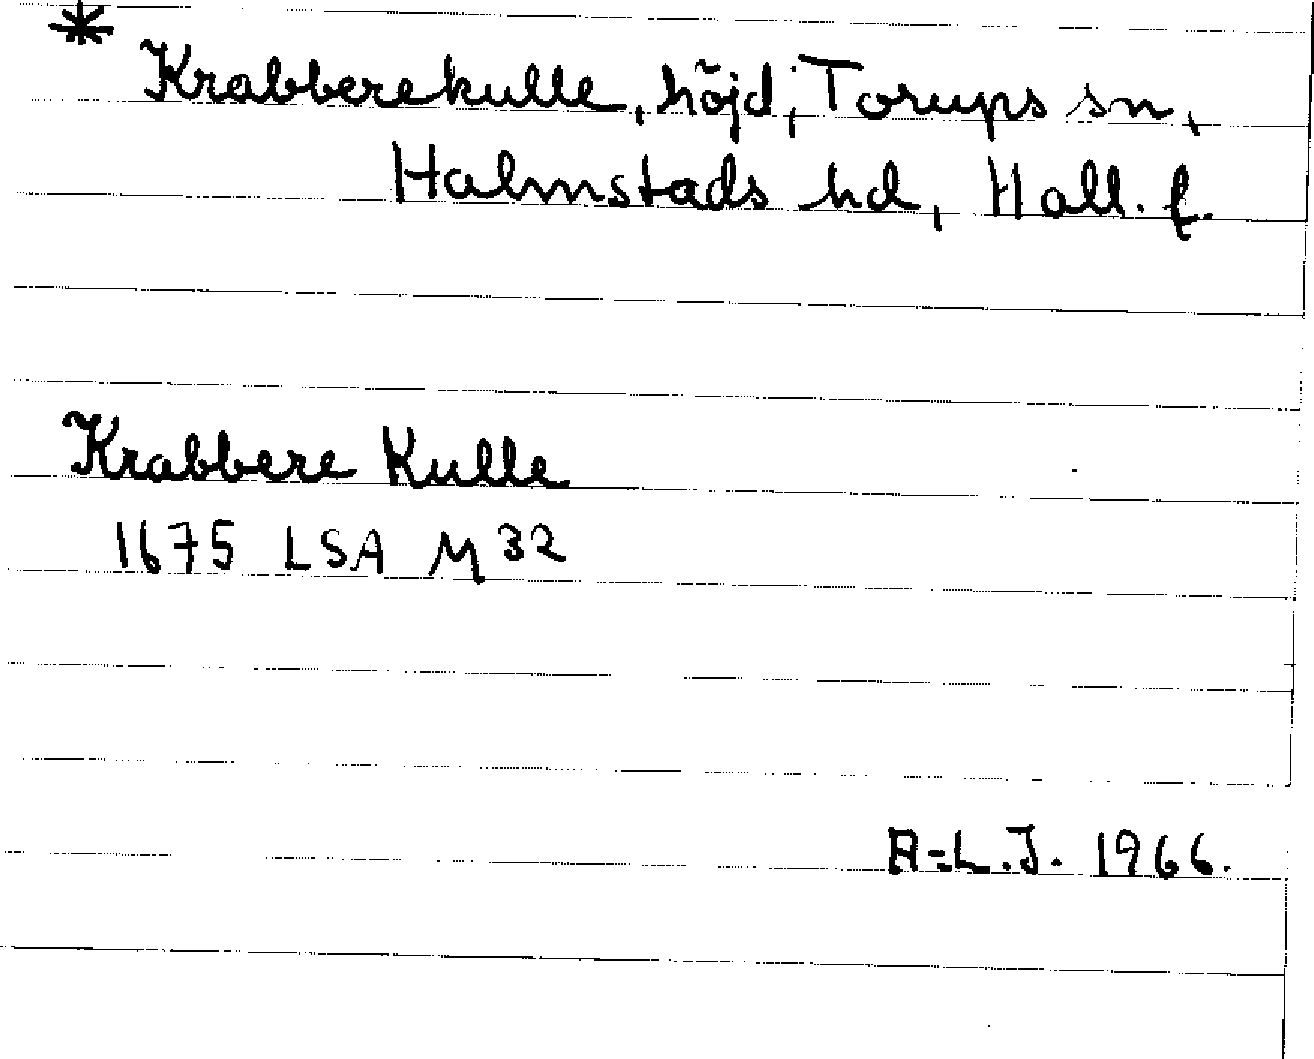 *
Krabberekulle, höjd, Torups sn,
Halmstads hd, Hall. f.
Krabbere Kulle
1675 LSA M 32
A-L.J. 1966.